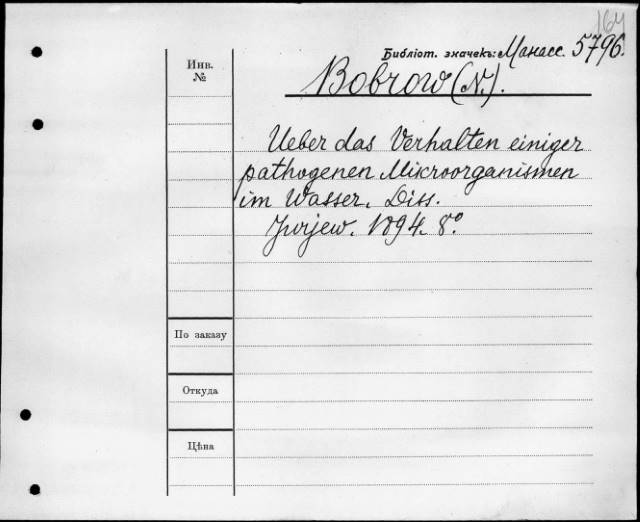 164
Библіот. значекъ: Манасс. 5796.
Инв.
№
Bobrow (N.).
Ueber das Verhalten einiger
pathogenen Mikroorganismen
im Wasser. Diss.
Jurjew. 1894. 8°.
По заказу
Откуда
Цѣна